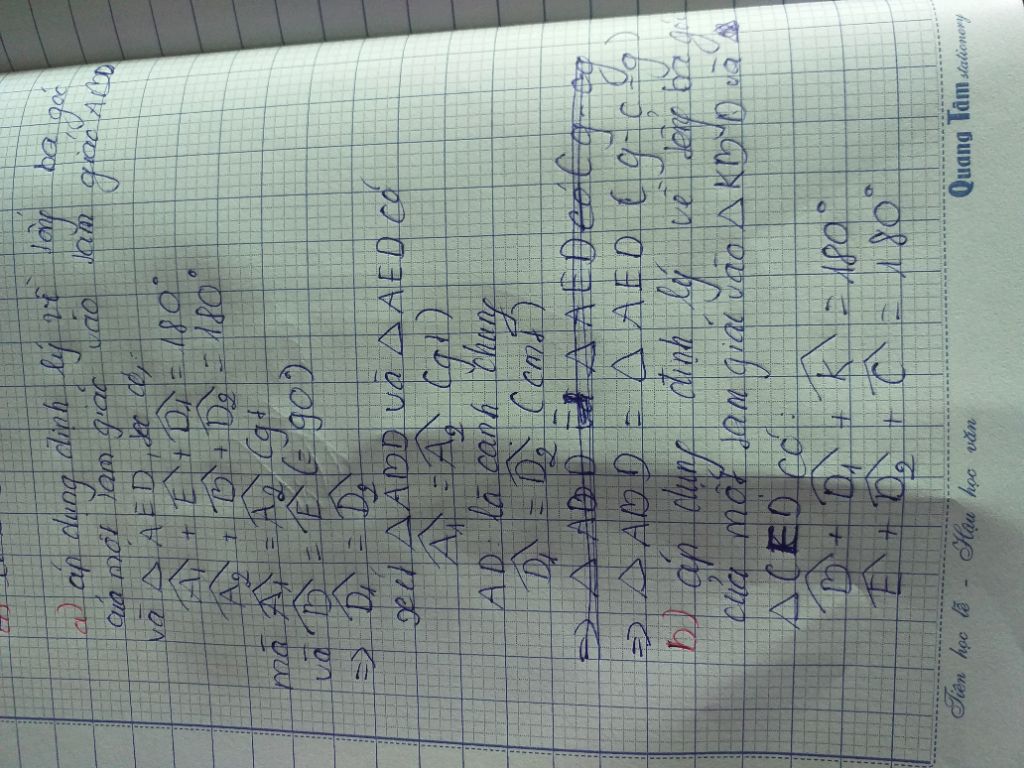 a) áp dụng định lý về tổng ba góc
của một tam giác vào tam giác ABD
và △ AED, ta có:
Â1 + Ê + D̂1 = 180°
Â2 + B̂ + D̂2 = 180°
mà Â1 = Â2 (gt)
và B̂ = Ê (= 90)
=> D̂1 = D̂2
xét △ ABD và △ AED có
Â1 = Â2 (gt)
AD là cạnh chung
D̂1 = D̂2 (cmt)
=> △ ABD = △ AED có (g-cg
=> △ ABD = △ AED (g-c-g)
b) áp dụng định lý về tổng ba gó
của một tam giác vào △ KBD và △
△ CED có:
B̂ + D̂1 + K̂ = 180°
Ê + D̂2 + Ĉ = 180°
Tiên học lễ - Hậu học văn
Quang Tâm stationery